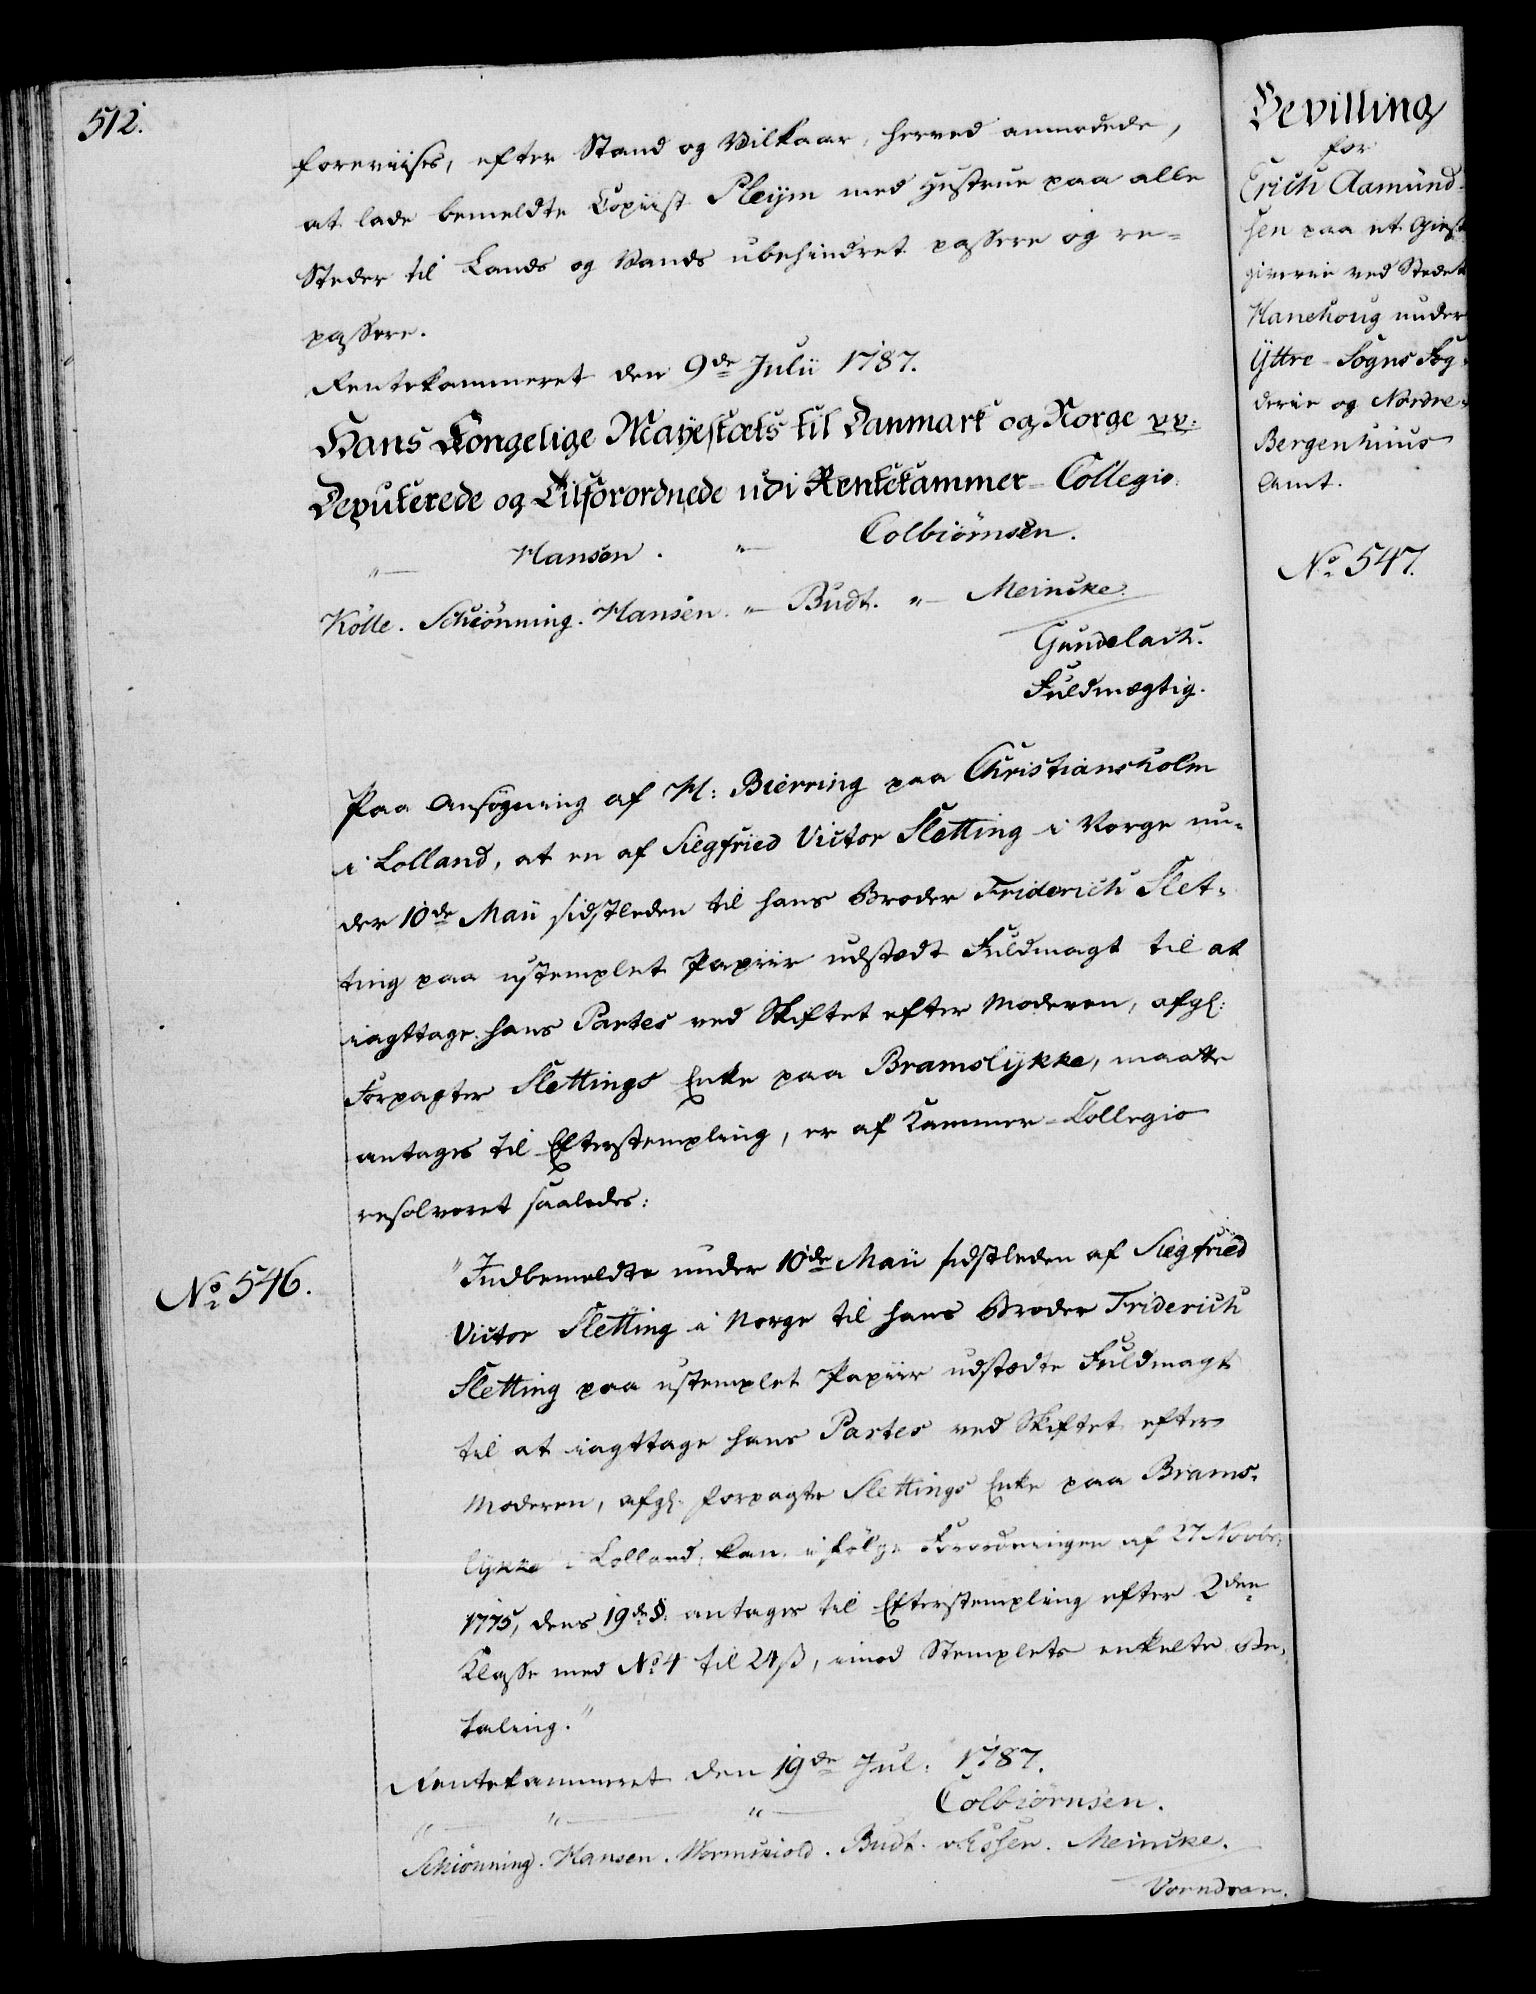 512.
foreviises, efter Stand og Vilkaar, herved anmodede,
at lade bemeldte Copiist Pleijm med Hustrue paa alle
Steder til Lands og Vands ubehindret passere og re-
passere.
Rentekammeret den 9de Julii 1787.
Hans Kongelige Mayestæts til Danmark og Norge pp:
Deputerede og Tilforordnede udi Rentekammer-Collegio.
"— Hansen. "— Colbiörnsen.
Kölle. Schiönning. Hansen. "— Budt. "— Meincke.
Gundelach.
Fuldmægtig.
Paa Ansøgning af H: Bierring paa Christiansholm
i Lolland, at en af Siegfried Victor Sletting i Norge un-
der 10de Maii sidstleden til hans Broder Friderich Slet-
ting paa ustemplet Papiir udstedt Fuldmagt til at
iagttage hans Partes ved Skiftet efter Moderen, afg:
Forpagter Slettings Enke paa Bramslykke, maatte
antages til Efterstempling, er af Kammer-Collegio
resolveret saaledes:
No 546.
"Indbemeldte under 10de Maii sidstleden af Siegfried
Victor Sletting i Norge til hans Broder Friderich
Sletting paa ustemplet Papiir udstædte Fuldmagt
til at iagttage hans Partes ved Skiftet efter
Moderen, afg: Forpagter Slettings Enke paa Brams-
lykke i Lolland, kan ifølge Forordningen af 27 Novbr:
1775, dens 19de §. antages til Efterstempling efter 2den
Klasse med No 4 til 24 ß, imod Stemplets enkelte Be-
taling."
Rentekammeret den 19de Jul: 1787.
"— "— "— Colbiörnsen.
Schiönning. Hansen. Wormskiold. Budt. v Essen. Meincke.
Vorndran.
Bevilling
for
Erich Aamund-
sen paa et Giest-
giverie ved Stedet
Hanehoug under
Yttre-Sogns Fog-
derie og Nordre-
Bergenhuus
Amt.
No 547.